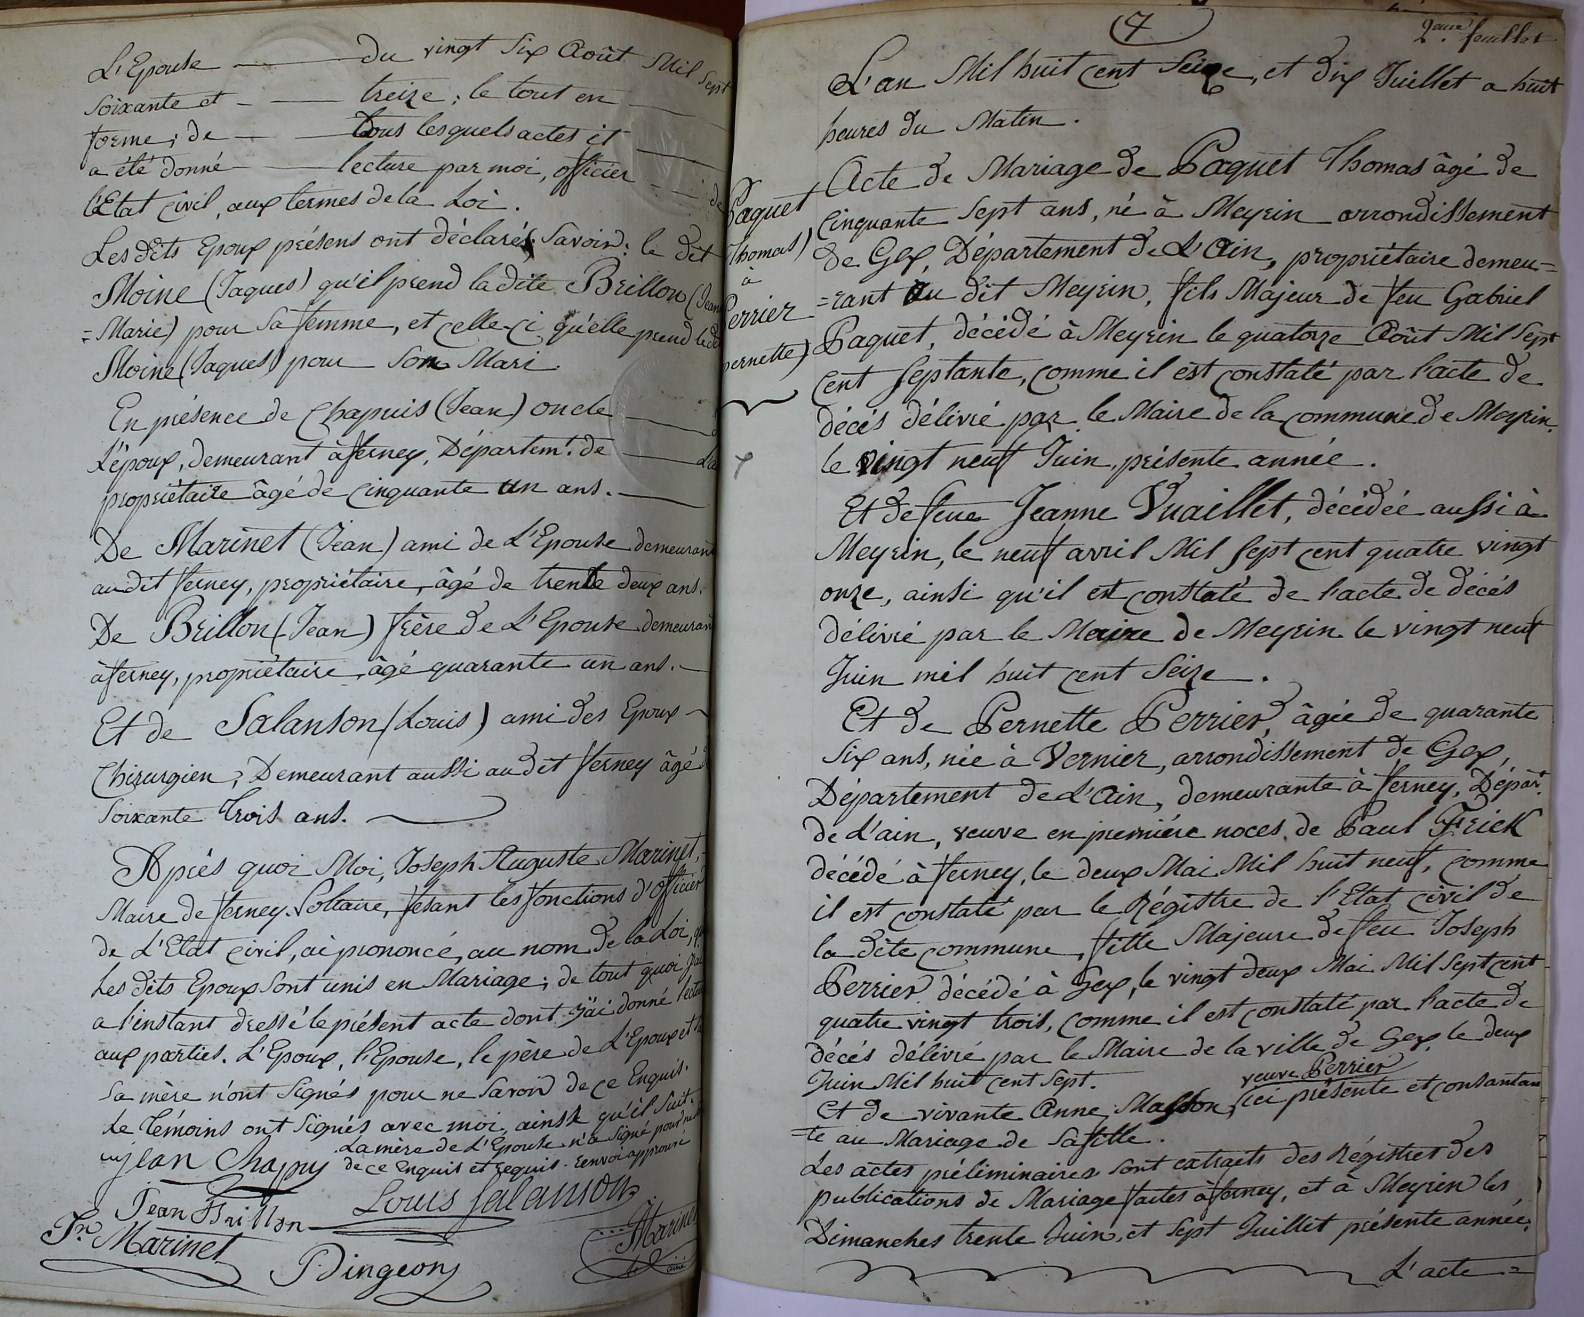 L'Epouse ——— du vingt Six Août Mil Sept
Soixante et - —— treize; le tout en
forme; de — —— tous lesquels actes il
a été donné —— lecture par moi, officier - - de
l'Etat Civil, aux termes de la Loi.
Les dits Epoux présens ont déclarés Savoir: le dit
Moine (Jaques) qu'il prend la dite Brillon (Jean
=Marie) pour sa femme, et celle-ci qu'elle prend le dit
Moine (Jaques) pour Son Mari
En présence de Chapuis (Jean) oncle
L'époux, demeurant à ferney, Départemt. de
propriétaire âgé de Cinquante un ans.
De Marinet (Jean) ami de L'Epouse demeurant
au dit ferney, propriétaire, âgé de trente deux ans.
De Brillon (Jean) frère de L'Epouse demeurant
à ferney, propriétaire, âgé quarante un ans.
Et de Salanson (Louis) ami des Epoux
Chirurgien, Demeurant aussi au dit ferney âgé
Soixante Trois ans.
Après quoi Moi, Joseph Auguste Marinet,
Maire de ferney-Voltaire, fesant les fonctions d'officier
de L'Etat Civil, ai prononcé, au nom de la Loi,
Les dits Epoux sont unis en Mariage; de tout quoi j'ai
a l'instant dressé le présent acte dont j'ai donné lecture
aux parties. L'Epoux, l'Epouse, le père de L'Epoux et
Sa mère n'ont Signés pour ne Savoir de ce Enquis.
Le Témoins ont Signés avec moi ainsi qu'il Suit.
La mère de L'Epouse n'a Signé pour ne
de ce Enquis et requis. renvoi approuvé
jean Chapuy
Jean Brillon
Louis Salanson
Jn. Marinet
P. Dingeon
Marinet
Paquet
Thomas)
à
Perrier
pernette)
7
2eme feuillet
L'an Mil huit Cent Seize, et dix Juillet a huit
heures du Matin.
Acte de Mariage de Paquet Thomas âgé de
Cinquante Sept ans, né à Meyrin arrondissement
de Gex, Département de L'Ain, propriétaire demeu=
=rant au dit Meyrin, fils Majeur de feu Gabriel
Paquet, décédé à Meyrin le quatorze Août Mil Sept
Cent Septante, comme il est constaté par l'acte de
décès délivré par le Maire de la Commune de Meyrin
le vingt neuf Juin, présente année.
Et de feue Jeanne Vuaillet, décédée aussi à
Meyrin, le neuf avril Mil Sept cent quatre vingt
onze, ainsi qu'il est constaté de l'acte de décès
délivré par le Maire de Meyrin le vingt neuf
Juin mil huit cent Seize.
Et de Pernette Perrier, âgée de quarante
Six ans, née à Vernier, arrondissement de Gex,
Département de L'Ain, demeurante à ferney, Départ.
de L'ain, veuve en première noces de Paul Frick
décédé à ferney, le deux Mai Mil huit neuf, comme
il est constaté par le Régistre de l'Etat civil de
la dite commune, fille Majeure de feu Joseph
Perrier décédé à Gex, le vingt deux Mai Mil Sept cent
quatre vingt trois, comme il est constaté par l'acte de
décès délivré par le Maire de la ville de Gex, le deux
Juin Mil huit cent Sept.
veuve Perrier
Et de vivante Anne Masson, ici présente et consantan
=te au Mariage de Sa fille.
Les actes préliminaires sont extraits des Régistres des
publications de Mariage faites à ferney, et à Meyrin les
Dimanches trente Juin, et Sept Juillet présente année;
L'acte =